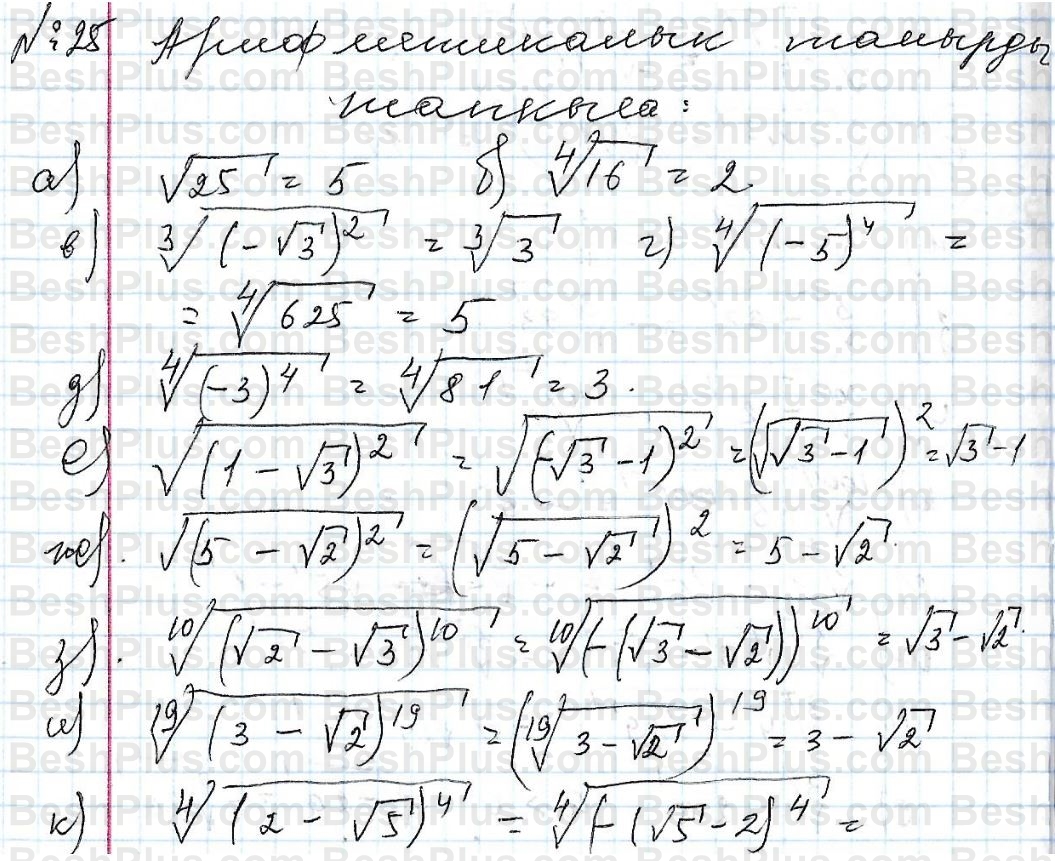 № 25 Арифметикалык тамырды
тапкыла:
а) √25 = 5 б) ⁴√16 = 2.
в) ³√(-√3)² = ³√3 г) ⁴√(-5)⁴ =
= ⁴√625 = 5
д) ⁴√(-3)⁴ = ⁴√81 = 3.
е) √(1 - √3)² = √(-√3 - 1)² = (√(√3 - 1))² = √3 - 1
ж). √(5 - √2)² = (√(5 - √2))² = 5 - √2.
з). ¹⁰√(√2 - √3)¹⁰ = ¹⁰√(-(√3 - √2))¹⁰ = √3 - √2.
и) ¹⁹√(3 - √2)¹⁹ = (¹⁹√(3 - √2))¹⁹ = 3 - √2
к) ⁴√(2 - √5)⁴ = ⁴√(-(√5 - 2)⁴ =
BeshPlus.com